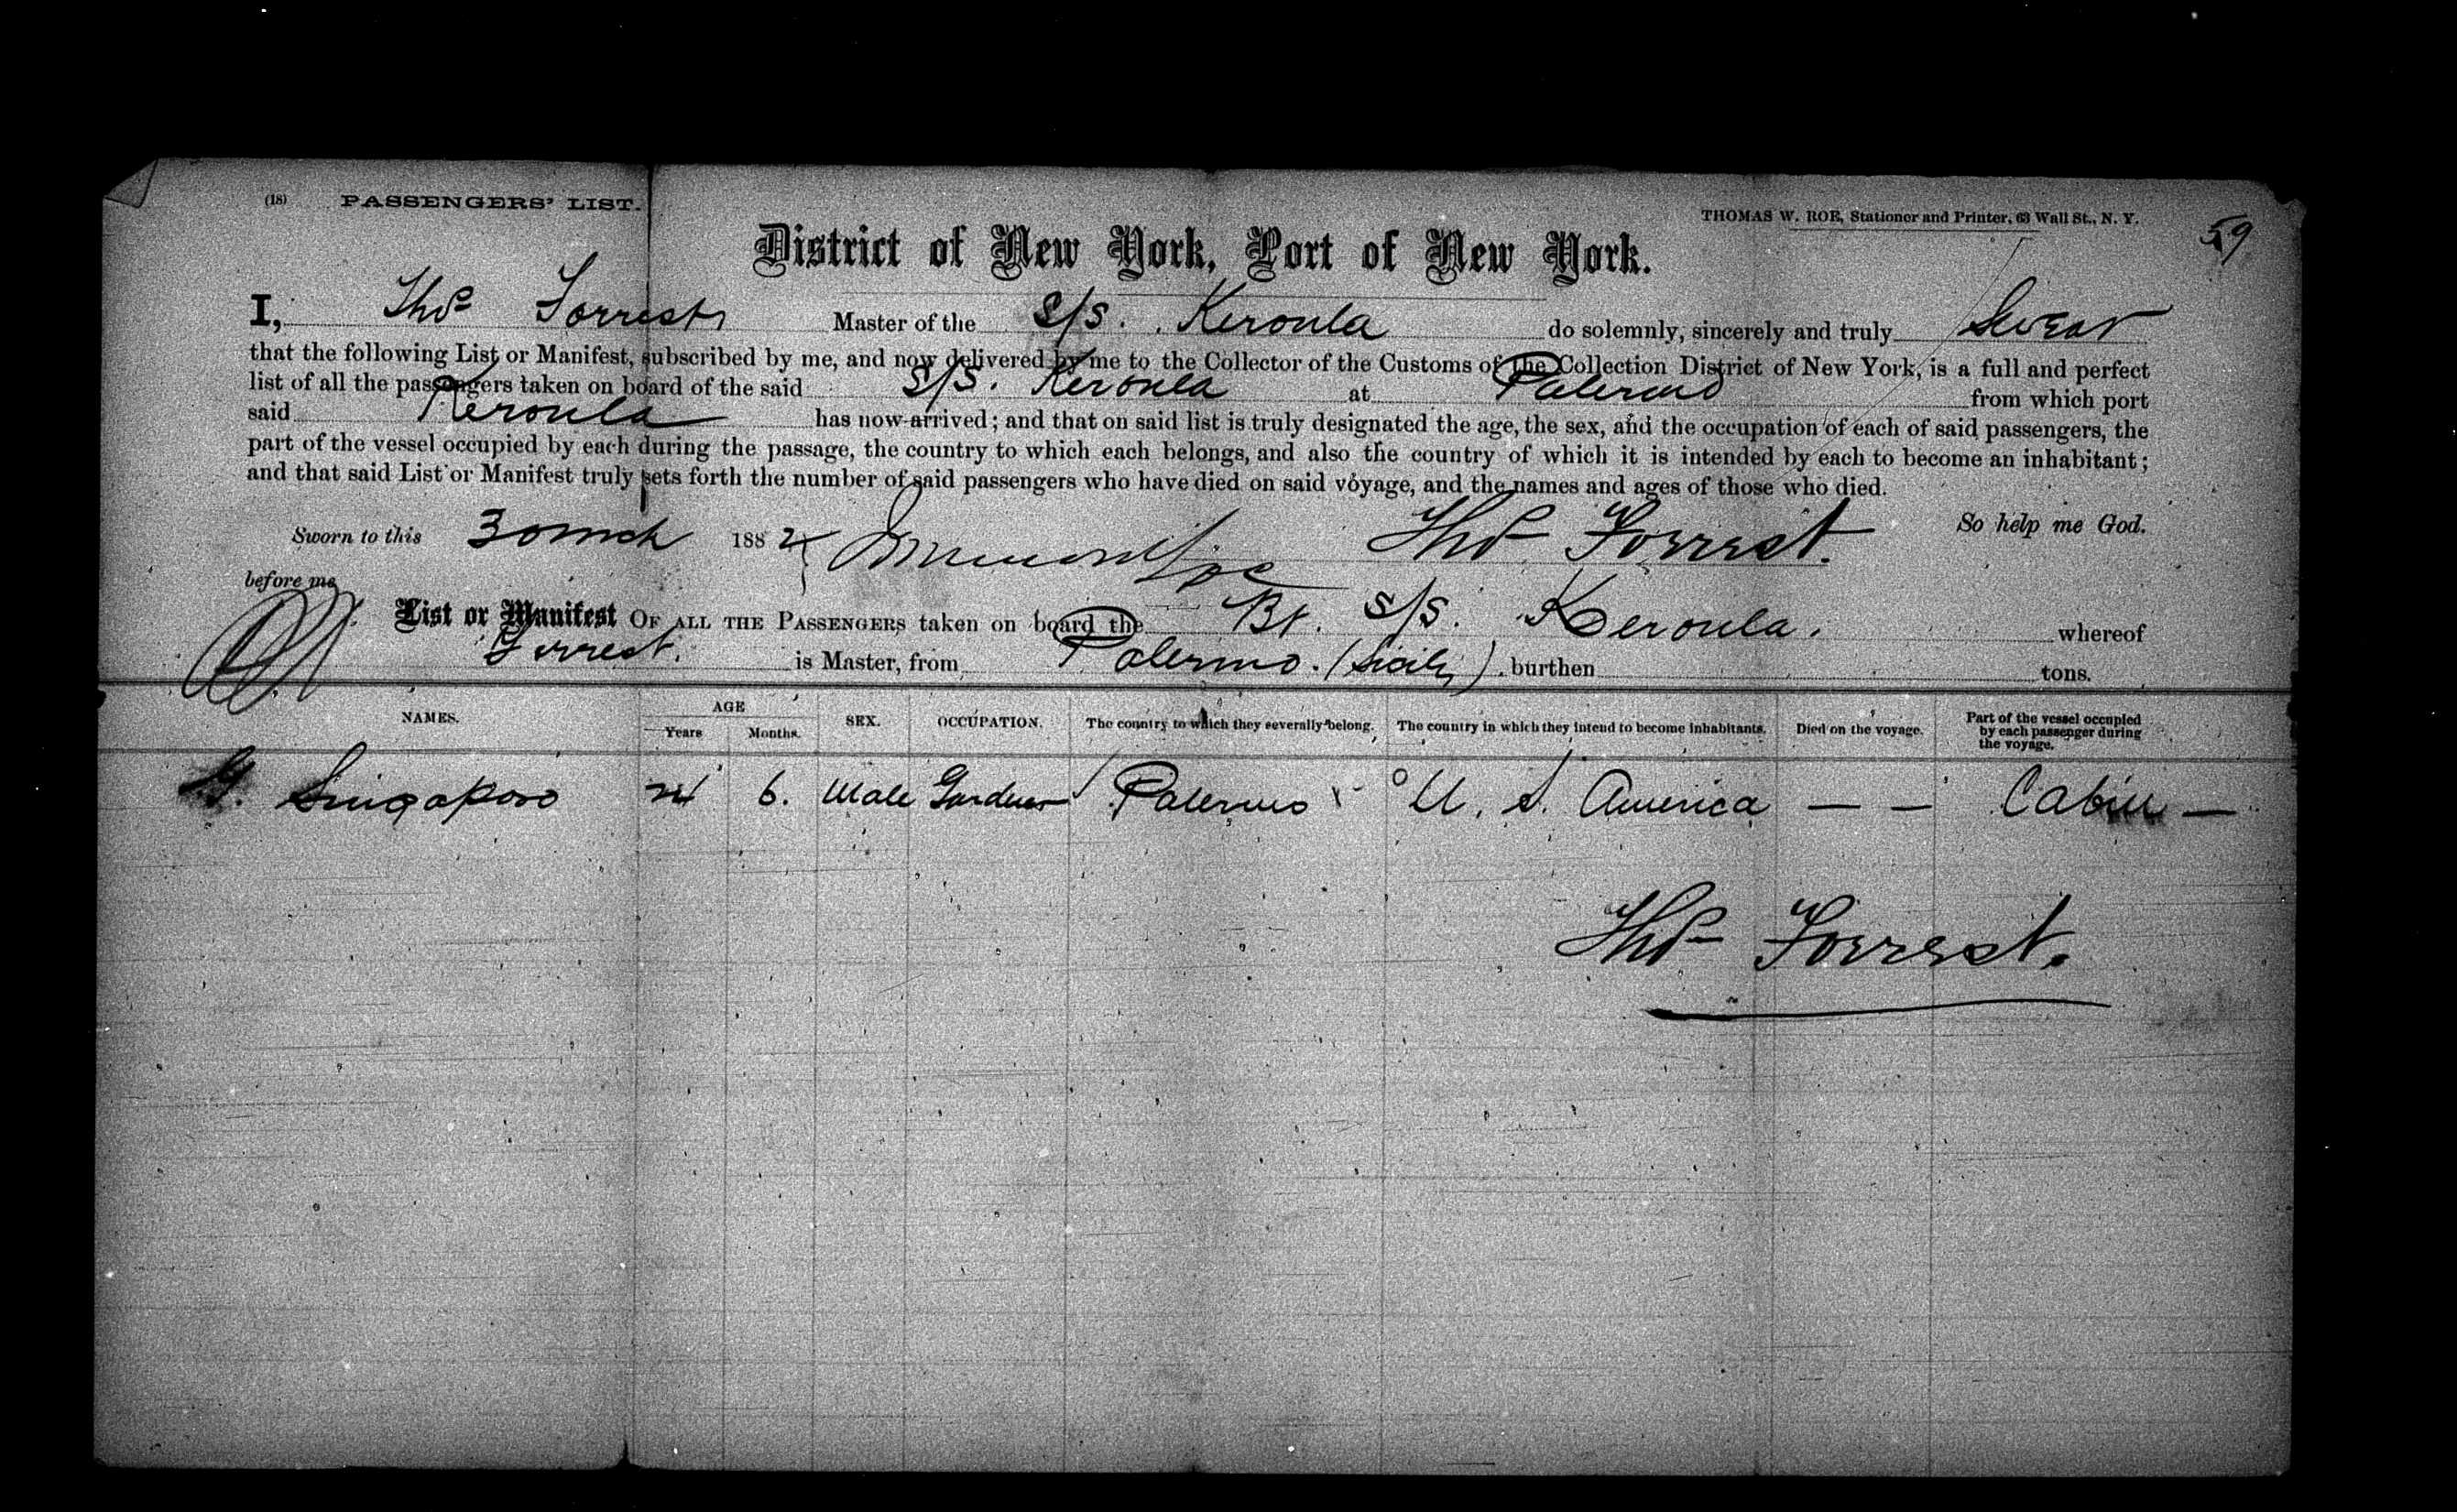 (18) PASSENGERS' LIST.
THOMAS W. ROE, Stationer and Printer, 63 Wall St., N. Y.
59
District of New York, Port of New York.
I, Thos Forrest Master of the S/S. Keroula do solemnly, sincerely and truly Swear
that the following List or Manifest, subscribed by me, and now delivered by me to the Collector of the Customs of the Collection District of New York, is a full and perfect
list of all the passengers taken on board of the said S/S. Keroula at Palermo from which port
said Keroula has now arrived; and that on said list is truly designated the age, the sex, and the occupation of each of said passengers, the
part of the vessel occupied by each during the passage, the country to which each belongs, and also the country of which it is intended by each to become an inhabitant;
and that said List or Manifest truly sets forth the number of said passengers who have died on said voyage, and the names and ages of those who died.
So help me God.
Sworn to this 30 mch 1882 Thos Forrest.
before me
List or Manifest OF ALL THE PASSENGERS taken on board the Br. S/S. Keroula. whereof
Forrest. is Master, from Palermo. (Sicily). burthen tons.
NAMES. AGE Years Months. SEX. OCCUPATION. The country to which they severally belong. The country in which they intend to become inhabitants. Died on the voyage. Part of the vessel occupied by each passenger during the voyage.
G. Singaposo 6. Male Gardner Palermo U. S. America — — Cabin —
Thos Forrest.